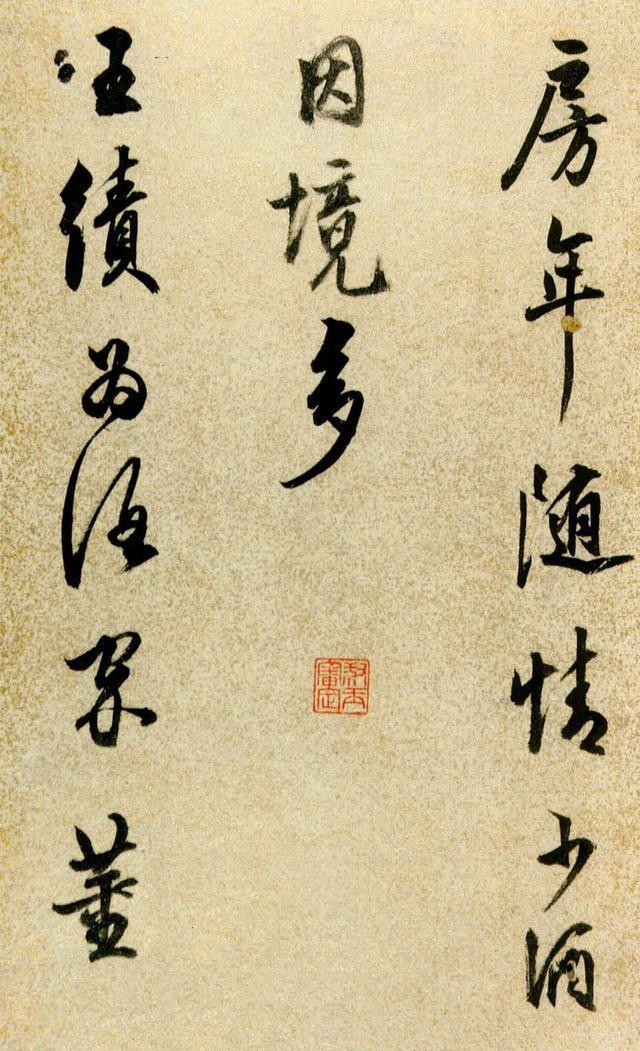 房年随情少酒
因境多
王績為酒家董